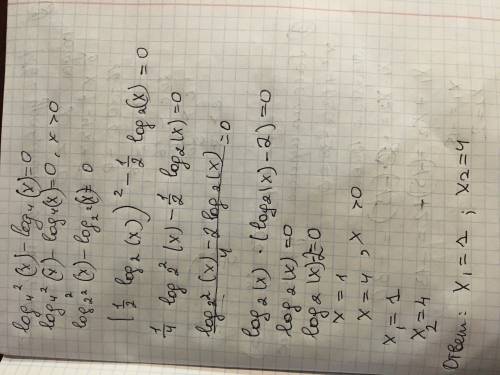 log₄²(x) - log₄(x) = 0
log₄²(x) - log₄(x) = 0, x > 0
log₂²²(x) - log₂²(x) = 0
(1/2 log₂(x))² - 1/2 log₂(x) = 0
1/4 log₂²(x) - 1/2 log₂(x) = 0
(log₂²(x) - 2 log₂(x))/4 = 0
log₂(x) · (log₂(x) - 2) = 0
log₂(x) = 0
log₂(x) - 2 = 0
x = 1
x = 4, x > 0
x₁ = 1
x₂ = 4
Ответ: x₁ = 1; x₂ = 4